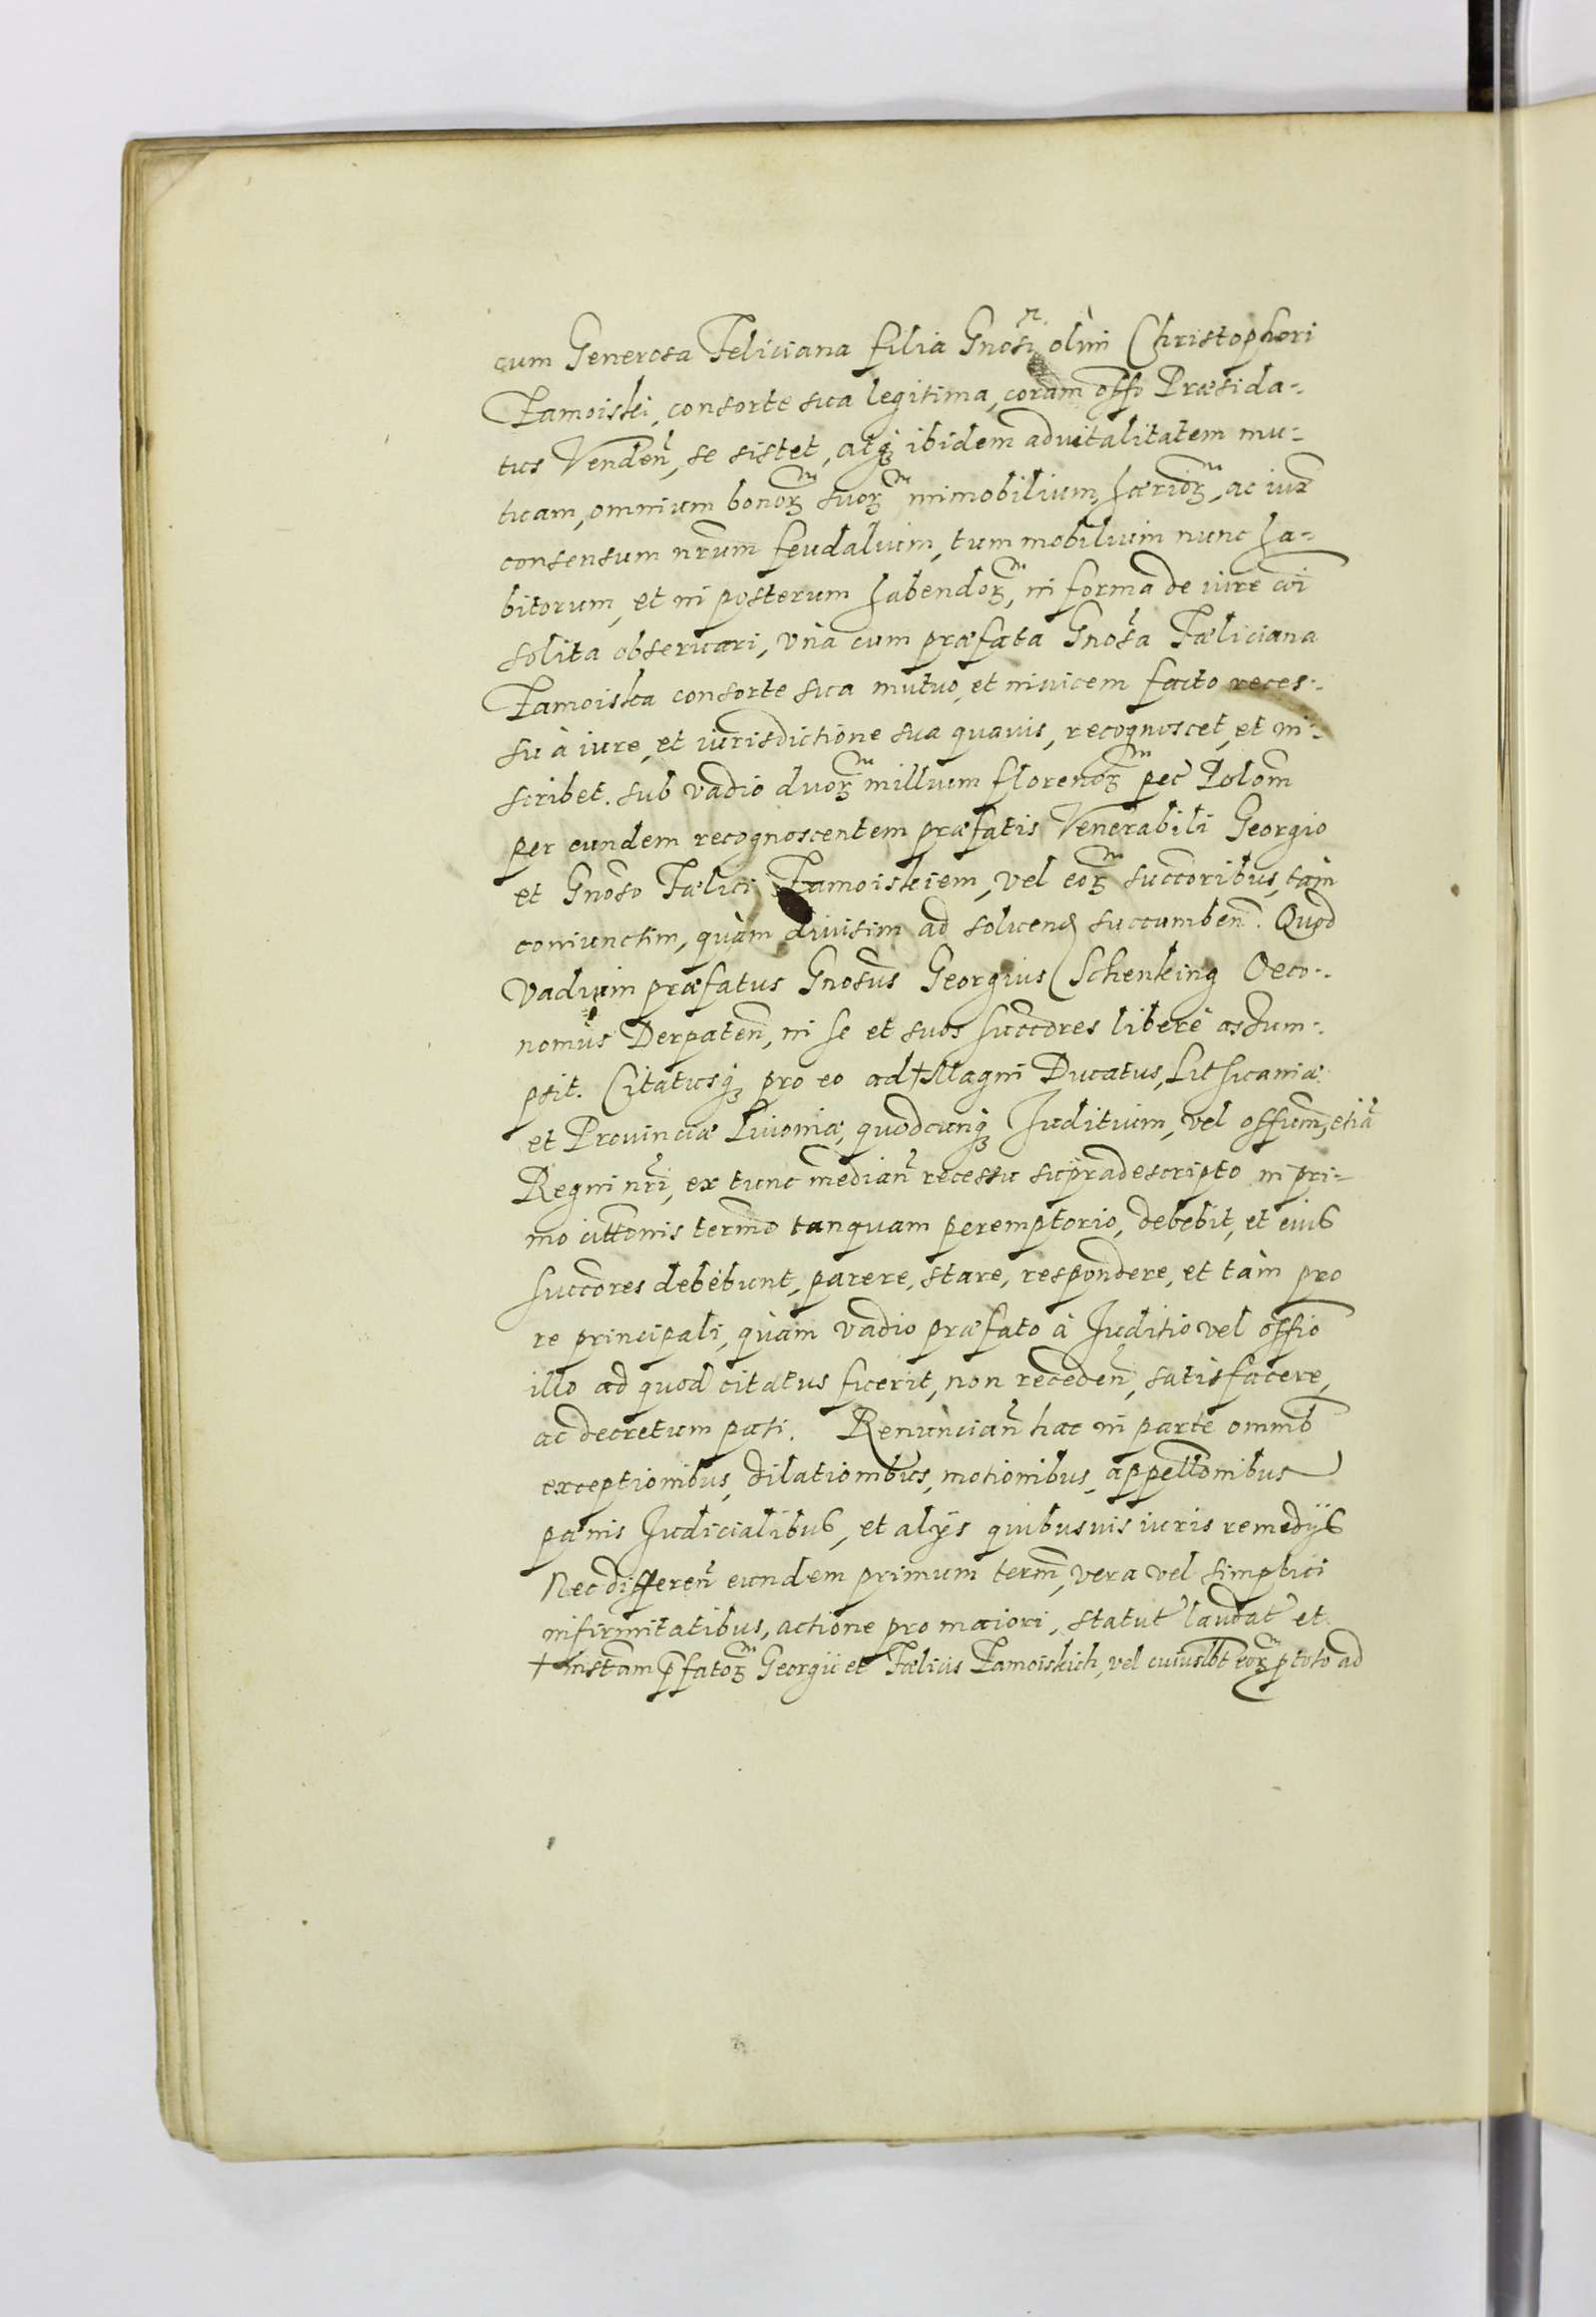 cum Generosa Feliciana filia Gnosi olim Christophori
Zamoiski, consorte sua legitima, coram offo Præsida-
tus Venden, se sistet, atq ibidem aduitalitatem mu-
tuam, omnium bonoꝝ suoꝝ immobilium hærioꝝ, ac iux
consensum nrum feudalium, tum mobilium nunc ha-
bitorum, et in posterum habendoꝝ, in forma de iure coi
solita obseruari, vnà cum præfata Gnosa Fæliciana
Zamoiska consorte sua mutuo, et inuicem facto reces-
su à iure, et iurisdictione sua quauis, recognoscet, et in-
scribet. sub vadio duoꝝ millium florenoꝝ pec Polom
per eundem recognoscentem præfatis Venerabili Georgio
et Gnoso Fælici Zamoiskiem, vel eoꝝ succoribus, tàm
coniunctim, quàm diuisim ad soluend succumben. Quod
vadium præfatus Gnosus Georgius Schenking Oeco-
nomus Derpaten, in se et suos succores liberè assum-
psit. Citatusq pro eo ad † Magni Ducatus, Lithuaniæ
et Prouinciæ Liuoniæ, quodcunq Juditium, vel offium, etiã
Regni nri, ex tunc median recessu supradescripto in pri-
mo cittonis termo tanquam peremptorio, debebit, et eius
succores debebunt, parere, stare, respondere, et tàm pro
re principali, quàm vadio præfato à Juditio vel offio
illo ad quod citatus fuerit, non receden, satisfacere,
ac decretum pati. Renuncian hac in parte omnib
exceptionibus, dilationibus, motionibus, appellonibus
pænis Judicialibus, et alijs quibusuis iuris remedijs
Nec differen eundem primum term, vera vel simplici
infirmitatibus, actione pro maiori, statut laudat et
† instam pfatoꝝ Georgii et Fælicis Zamoiskich, vel cuiuslbt eoꝝ ptoto ad